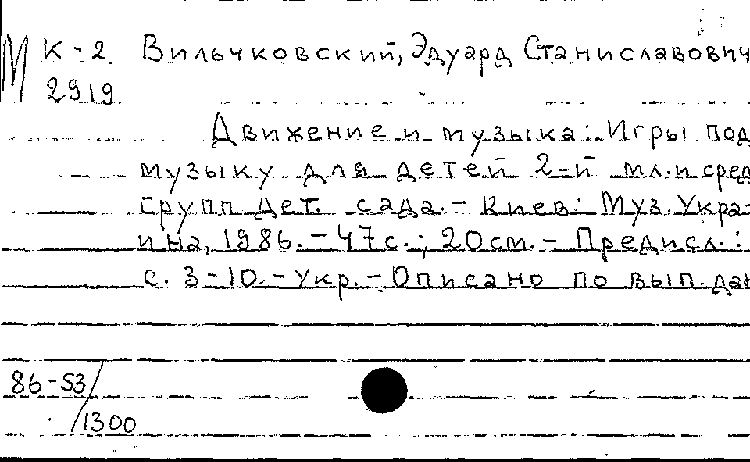 М К-2 Вильчковский, Эдуард Станиславович
2919
Движение и музыка: Игры под
музыку для детей 2-й мл. и сред
групп дет. сада. - Киев: Муз. Укра-
ина, 1986. - 47 с.; 20 см. - Предисл.:
с. 3-10. - Укр. - Описано по вып. дан
86-53/
/1300